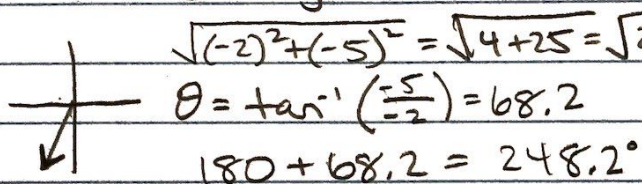 √(-2)²+(-5)² = √4+25 = √
θ = tan⁻¹ (-5/-2) = 68.2
180 + 68.2 = 248.2°